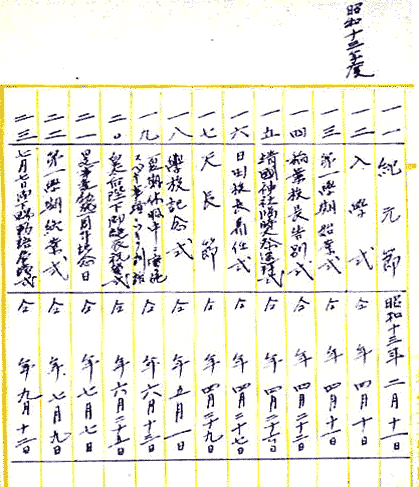 昭和十三年度
一一 紀元節 昭和十三年 二月十一日
一二 入學式 仝 年 四月十日
一三 第一學期始業式 仝 年 四月十一日
一四 稲葉校長告別式 仝 年 四月二十二日
一五 靖國神社臨時 遥拝式 仝 年 四月二十六日
一六 日田校長着任式 仝 年 四月二十七日
一七 天長節 仝 年 四月二十九日
一八 學校記念式 仝 年 五月一日
一九 夏期休暇中 仝 年 六月十三日
二〇 皇太后陛下御誕辰祝賀式 仝 年 六月二十五日
二一 周年記念日 仝 年 七月七日
二二 第一學期終業式 仝 年 七月九日
二三 七月七日 式 仝 年 九月十二日